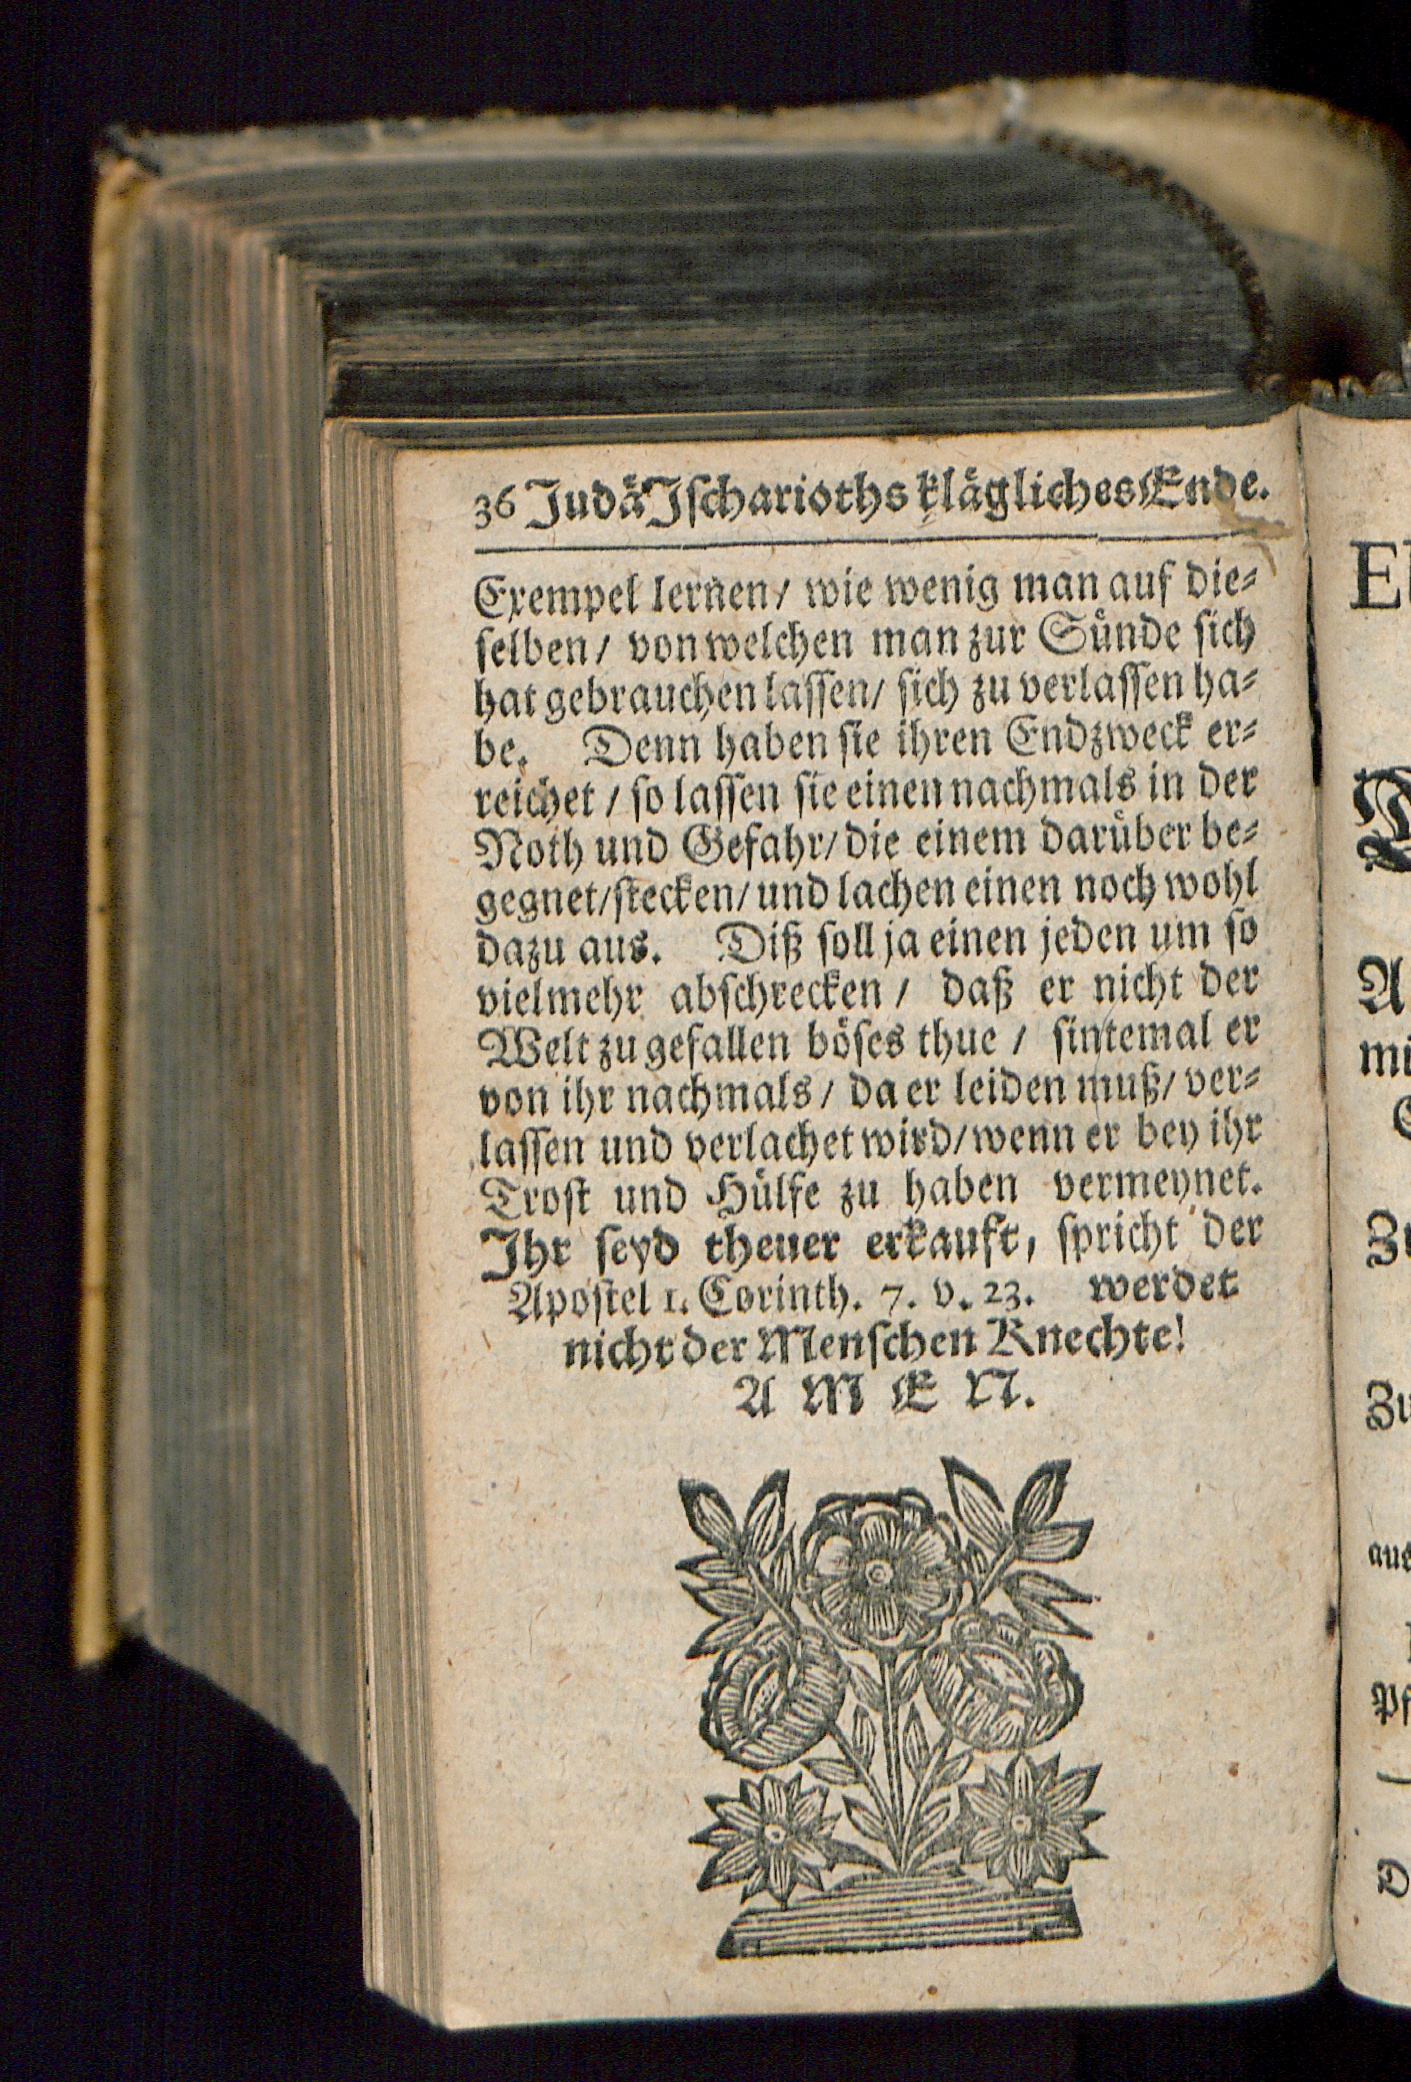 36 Judä Ischarioths klägliches Ende.
Exempel lernen/ wie wenig man auf die⸗
selben/ von welchen man zur Sünde sich
hat gebrauchen lassen/ sich zu verlassen ha⸗
be. Denn haben sie ihren Endzweck er⸗
reichet / so lassen sie einen nachmals in der
Noth und Gefahr/ die einem darüber be⸗
gegnet/stecken/ und lachen einen noch wohl
dazu aus. Diß soll ja einen jeden um so
vielmehr abschrecken / daß er nicht der
Welt zu gefallen böses thue / sintemal er
von ihr nachmals / da er leiden muß/ ver⸗
lassen und verlachet wird/wenn er bey ihr
Trost und Hülfe zu haben vermeynet.
Ihr seyd theuer erkauft, spricht der
Apostel 1. Corinth. 7. v. 23. werdet
nicht der Menschen Knechte!
A M E N.